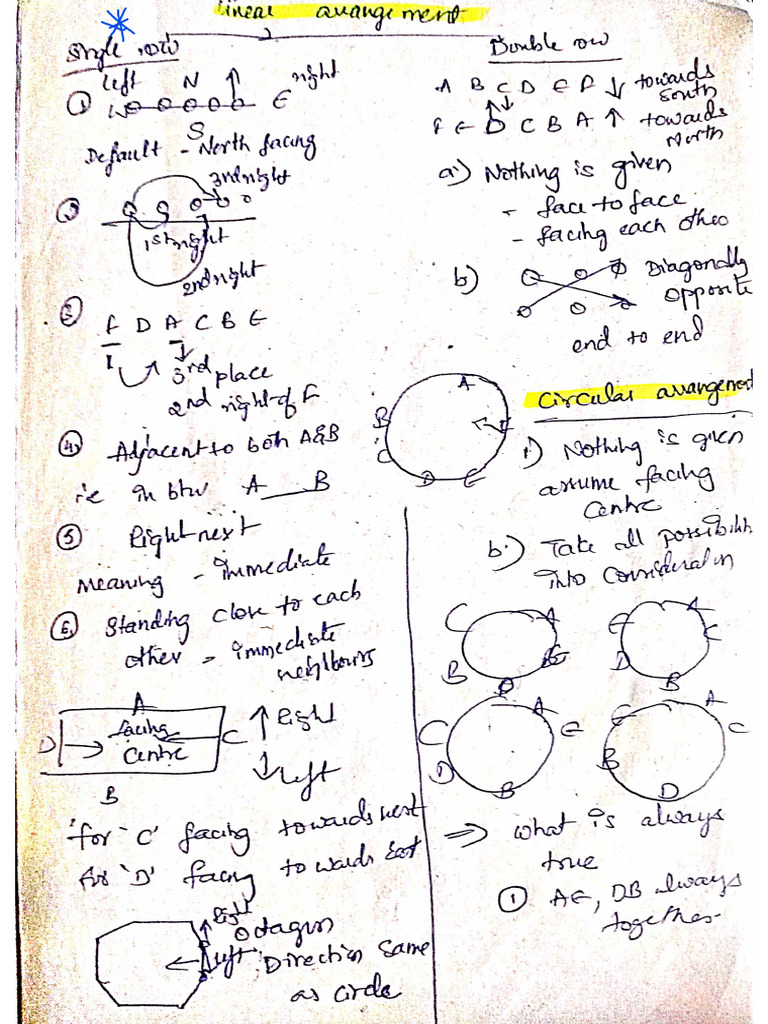 Linear arrangement
Single row
① left N right
W E
S
Default - North facing
② 3rd right
1st right
2nd right
③ F D A C B E
3rd place
2nd right of F
④ Adjacent to both A&B
i.e in btw A __ B
⑤ Right next
Meaning - immediate
⑥ Standing close to each
other = immediate
neighbours
A
D facing C
centre
B
Right
Left
for 'C' facing towards west
for 'D' facing towards East
Right
Left
Octagon
Direction same
as circle
Double row
A B C D E F ↓ towards
South
F E D C B A ↑ towards
North
a) Nothing is given
- face to face
- facing each other
b) Diagonally
opposite
end to end
Circular arrangement
A
B
C
D E
i) Nothing is given
assume facing
Centre
b) Take all possibilit
into consideration
C A
B E
D
E A
C
D B
C A
E
D B
E A
C
B D
⇒ what is always
true
① AE, DB always
together.